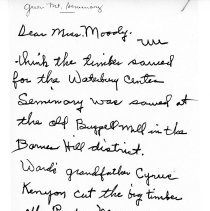 Green Mt. Seminary
Dear Miss. Moody-
think the timber sawed
for the Waterbury Center
Seminary was sawed at
the old Buzzell mill in the
Barnes Hill district.
Ward's grandfather Cyrus
Kenyon cut the big timber